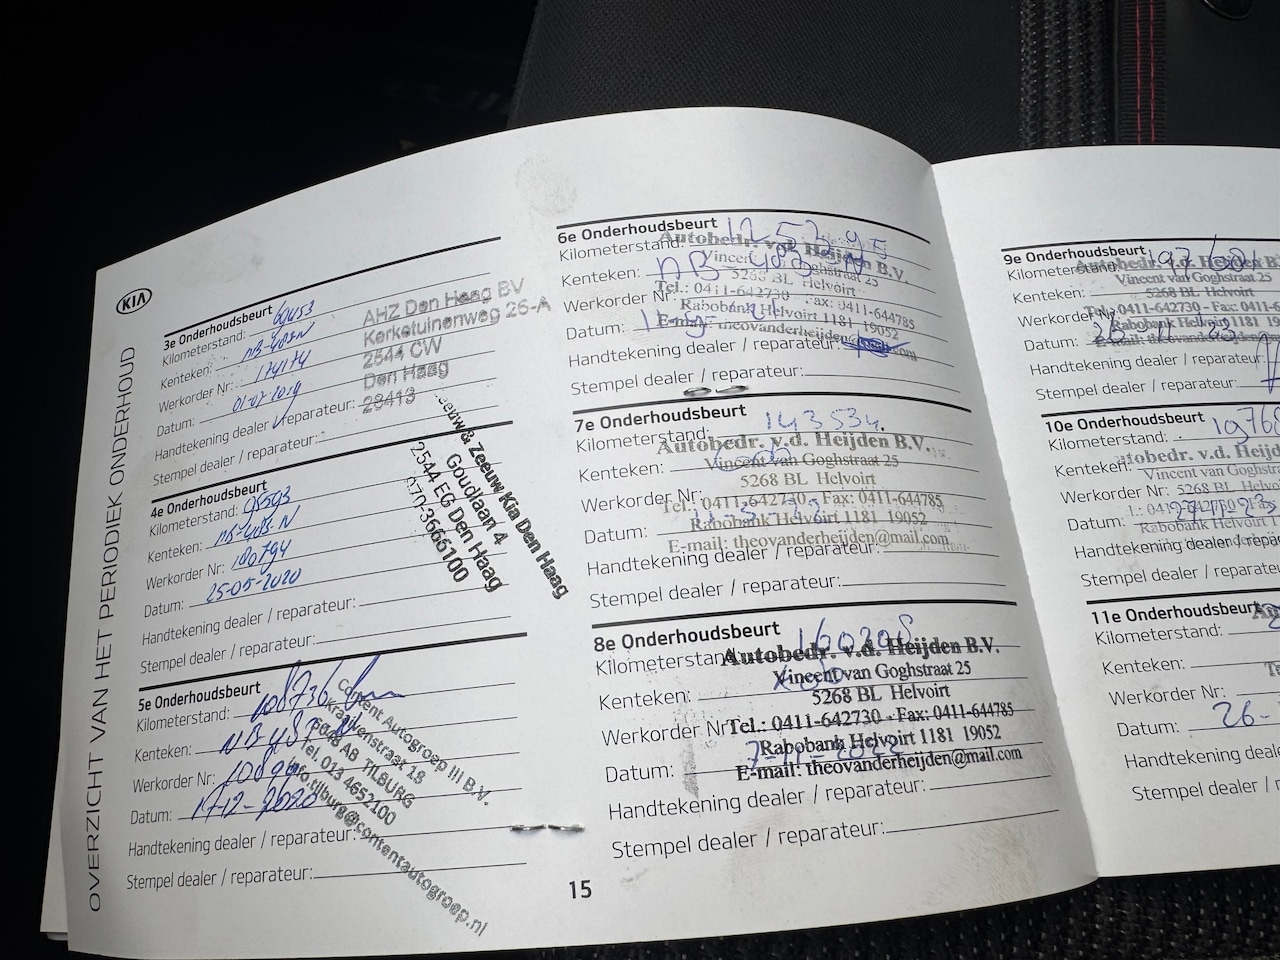 KIA
OVERZICHT VAN HET PERIODIEK ONDERHOUD
3e Onderhoudsbeurt
Kilometerstand: 69453
Kenteken: NB-485-N
Werkorder Nr: 174174
Datum: 01-07-2019
Handtekening dealer / reparateur:
Stempel dealer / reparateur:
AHZ Den Haag BV
Kerketuinenweg 26-A
2544 CW
Den Haag
28413
4e Onderhoudsbeurt
Kilometerstand: 95593
Kenteken: NB-485-N
Werkorder Nr: 180794
Datum: 25-05-2020
Handtekening dealer / reparateur:
Stempel dealer / reparateur:
Zeeuw & Zeeuw Kia Den Haag
Goudlaan 4
2544 EG Den Haag
070-3666100
5e Onderhoudsbeurt
Kilometerstand:
Kenteken:
Werkorder Nr:
Datum: 17-12-2020
Handtekening dealer / reparateur:
Stempel dealer / reparateur:
Content Autogroep III B.V.
Kraaivenstraat 18
5048 AB TILBURG
Tel. 013 4652100
info.tilburg@contentautogroep.nl
6e Onderhoudsbeurt
Kilometerstand:
Kenteken:
Werkorder Nr:
Datum:
Handtekening dealer / reparateur:
Stempel dealer / reparateur:
Autobedr. v.d. Heijden B.V.
Vincent van Goghstraat 25
5268 BL Helvoirt
Tel.: 0411-642730 Fax: 0411-644785
Rabobank Helvoirt 1181 19052
E-mail: theovanderheijden
7e Onderhoudsbeurt
Kilometerstand: 143534
Kenteken:
Werkorder Nr:
Datum:
Handtekening dealer / reparateur:
Stempel dealer / reparateur:
Autobedr. v.d. Heijden B.V.
Vincent van Goghstraat 25
5268 BL Helvoirt
Tel.: 0411-642730 - Fax: 0411-644785
Rabobank Helvoirt 1181 19052
E-mail: theovanderheijden@mail.com
8e Onderhoudsbeurt
Kilometerstand: 160208
Kenteken:
Werkorder Nr
Datum: 7-11-2022
Handtekening dealer / reparateur:
Stempel dealer / reparateur:
Autobedr. v.d. Heijden B.V.
Vincent van Goghstraat 25
5268 BL Helvoirt
Tel.: 0411-642730 - Fax: 0411-644785
Rabobank Helvoirt 1181 19052
E-mail: theovanderheijden@mail.com
15
9e Onderhoudsbeurt
Kilometerstand:
Kenteken:
Werkorder Nr:
Datum:
Handtekening dealer / reparateur
Stempel dealer / reparateur
Autobedr. v.d. Heijden B.
Vincent van Goghstraat 25
5268 BL Helvoirt
0411-642730 - Fax: 0411
Rabobank Helvoirt 1181 1
10e Onderhoudsbeurt
Kilometerstand:
Kenteken:
Werkorder Nr:
Datum:
Handtekening dealer / repara
Stempel dealer / reparateu
utobedr. v.d. Heijd
Vincent van Goghstra
5268 BL Helvoi
11e Onderhoudsbeurt
Kilometerstand:
Kenteken:
Werkorder Nr:
Datum: 26-
Handtekening dealer
Stempel dealer / rep